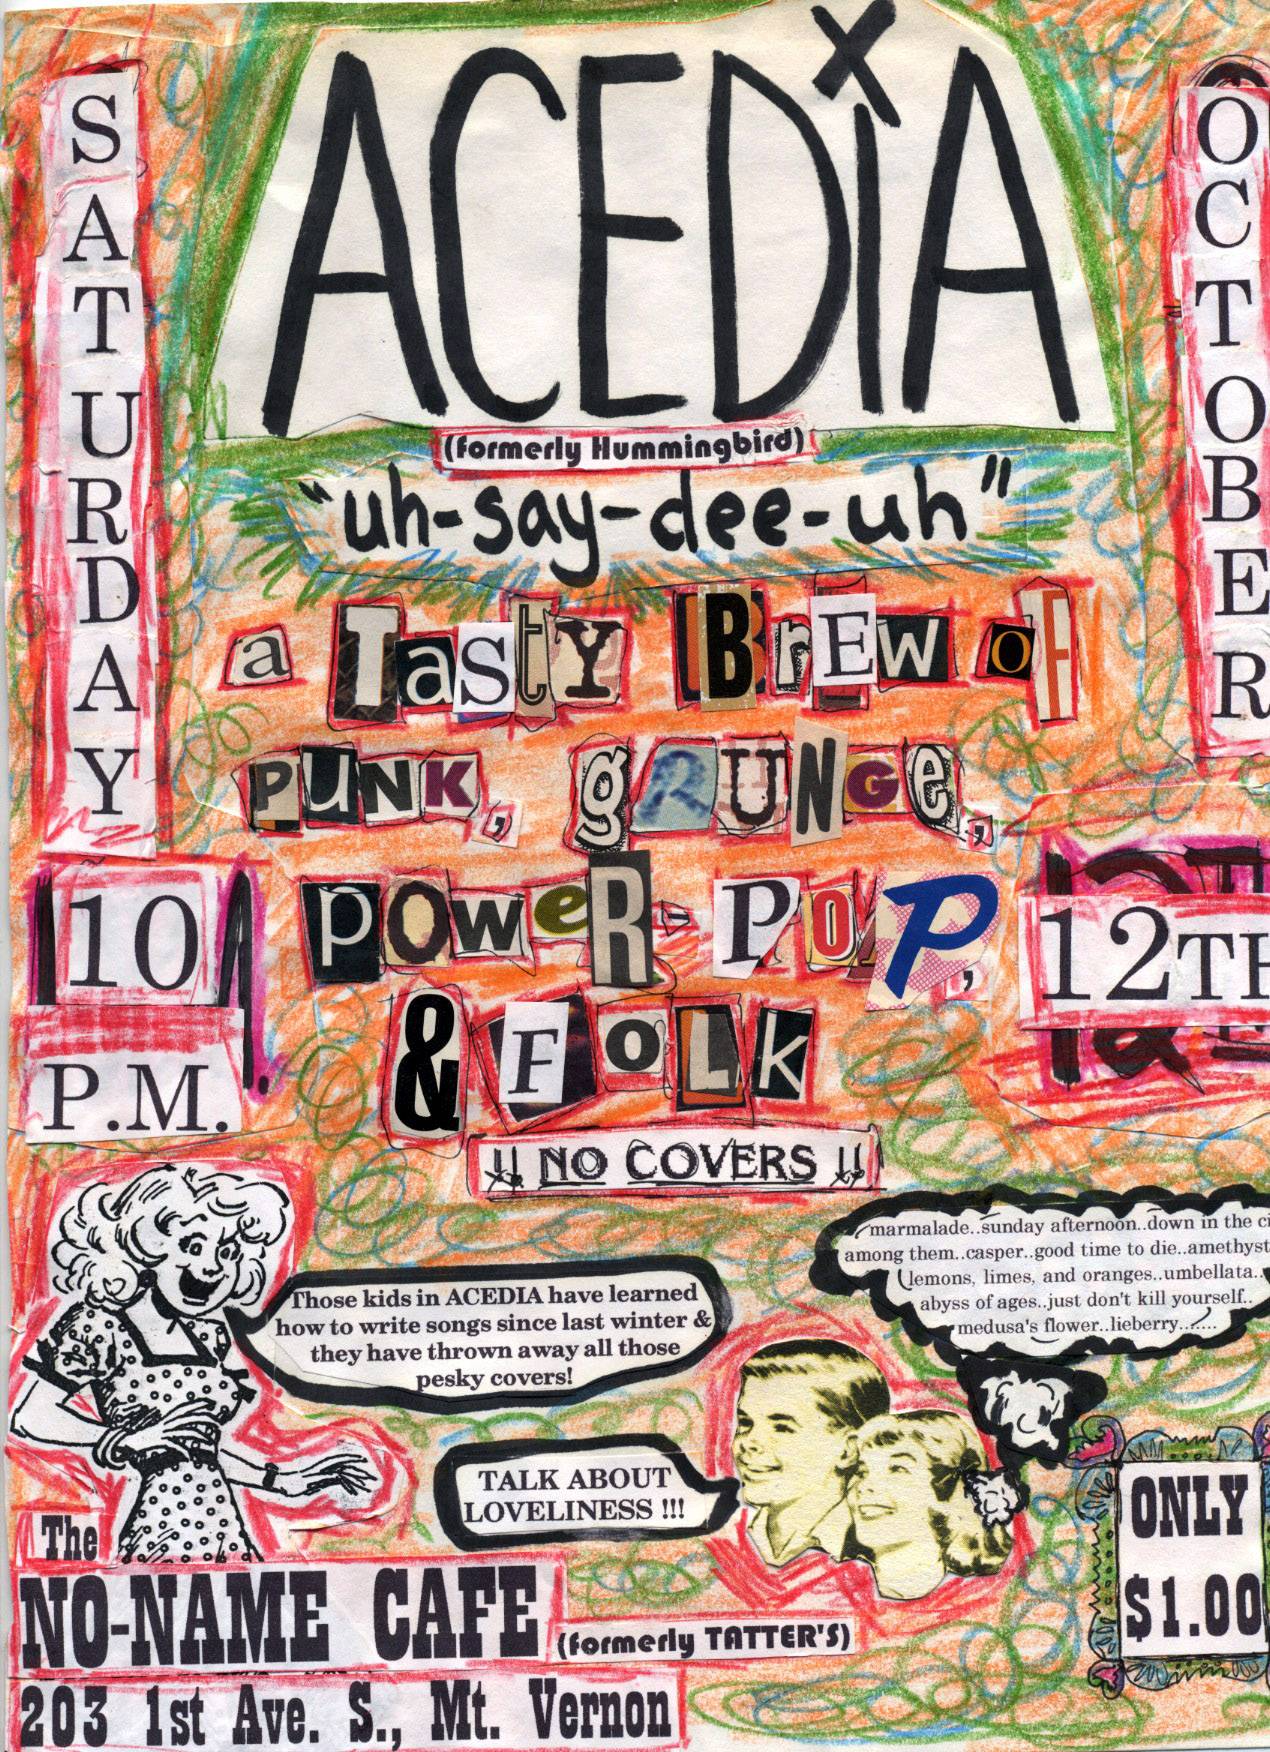 ACEDiA
(formerly Hummingbird)
"uh-say-dee-uh"
SATURDAY
OCTOBER
a TaStY BrEW oF
PUNK, gRUNGe,
POWeR-POP,
& FOLK
10
P.M.
12TH
!! NO COVERS !!
Those kids in ACEDIA have learned
how to write songs since last winter &
they have thrown away all those
pesky covers!
marmalade..sunday afternoon..down in the ci
among them..casper..good time to die..amethyst
lemons, limes, and oranges..umbellata..
abyss of ages..just don't kill yourself..
medusa's flower..lieberry......
TALK ABOUT
LOVELINESS !!!
ONLY
$1.00
The
NO-NAME CAFE
(formerly TATTER'S)
203 1st Ave. S., Mt. Vernon